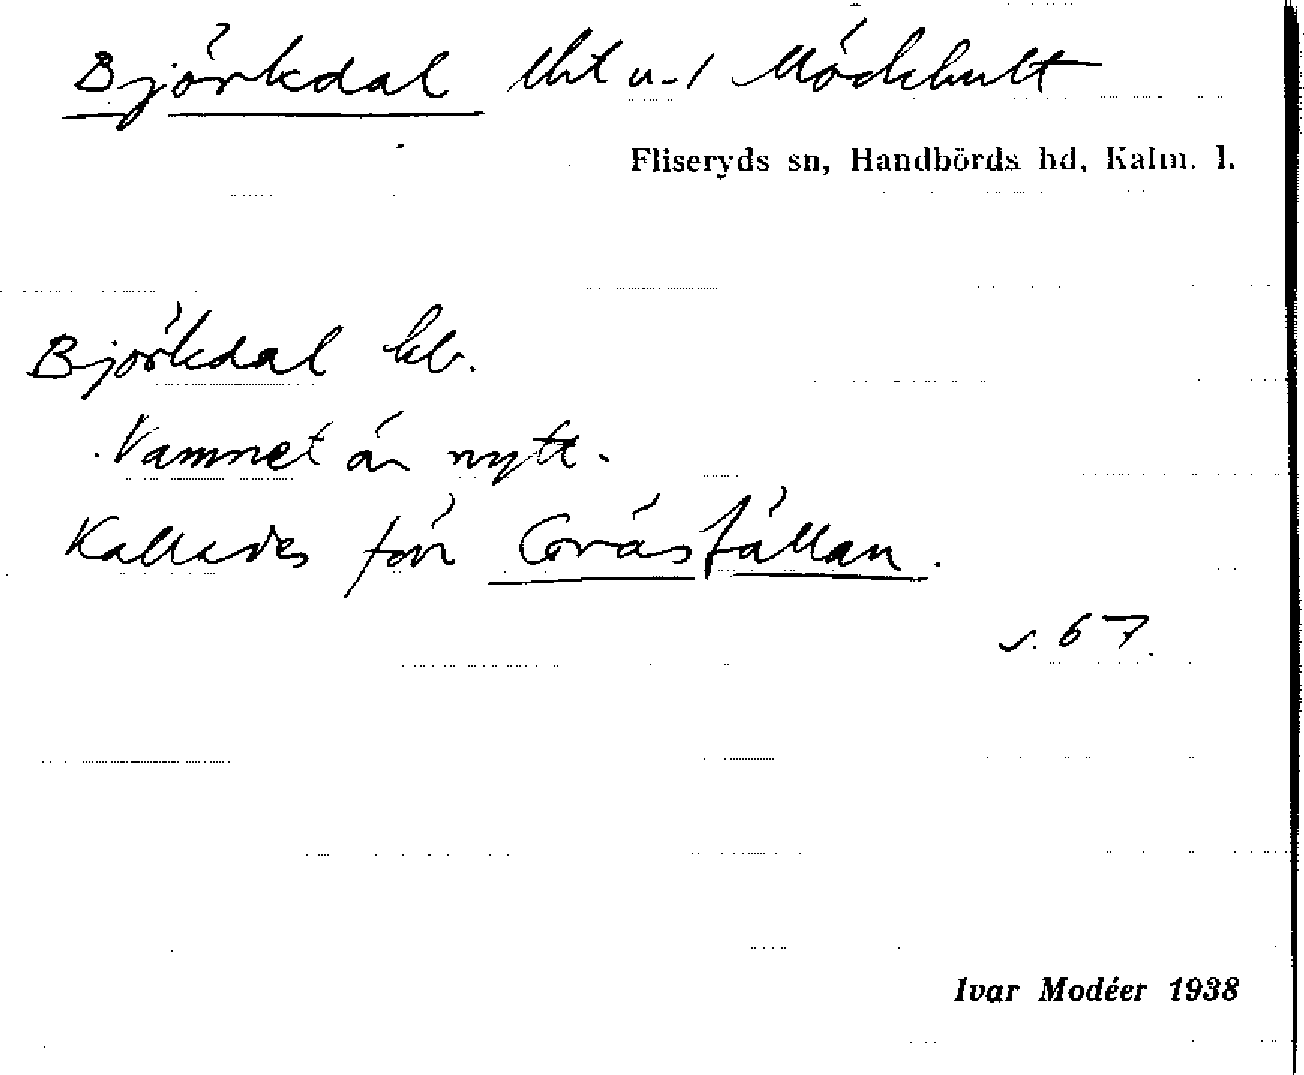 Björkdal lht u. Möckhult
Fliseryds sn, Handbörds hd, Kalm. l.
Björkdal lb.
Namnet är nytt.
Kallades förr Gråsfällan.
s. 67.
Ivar Modéer 1938